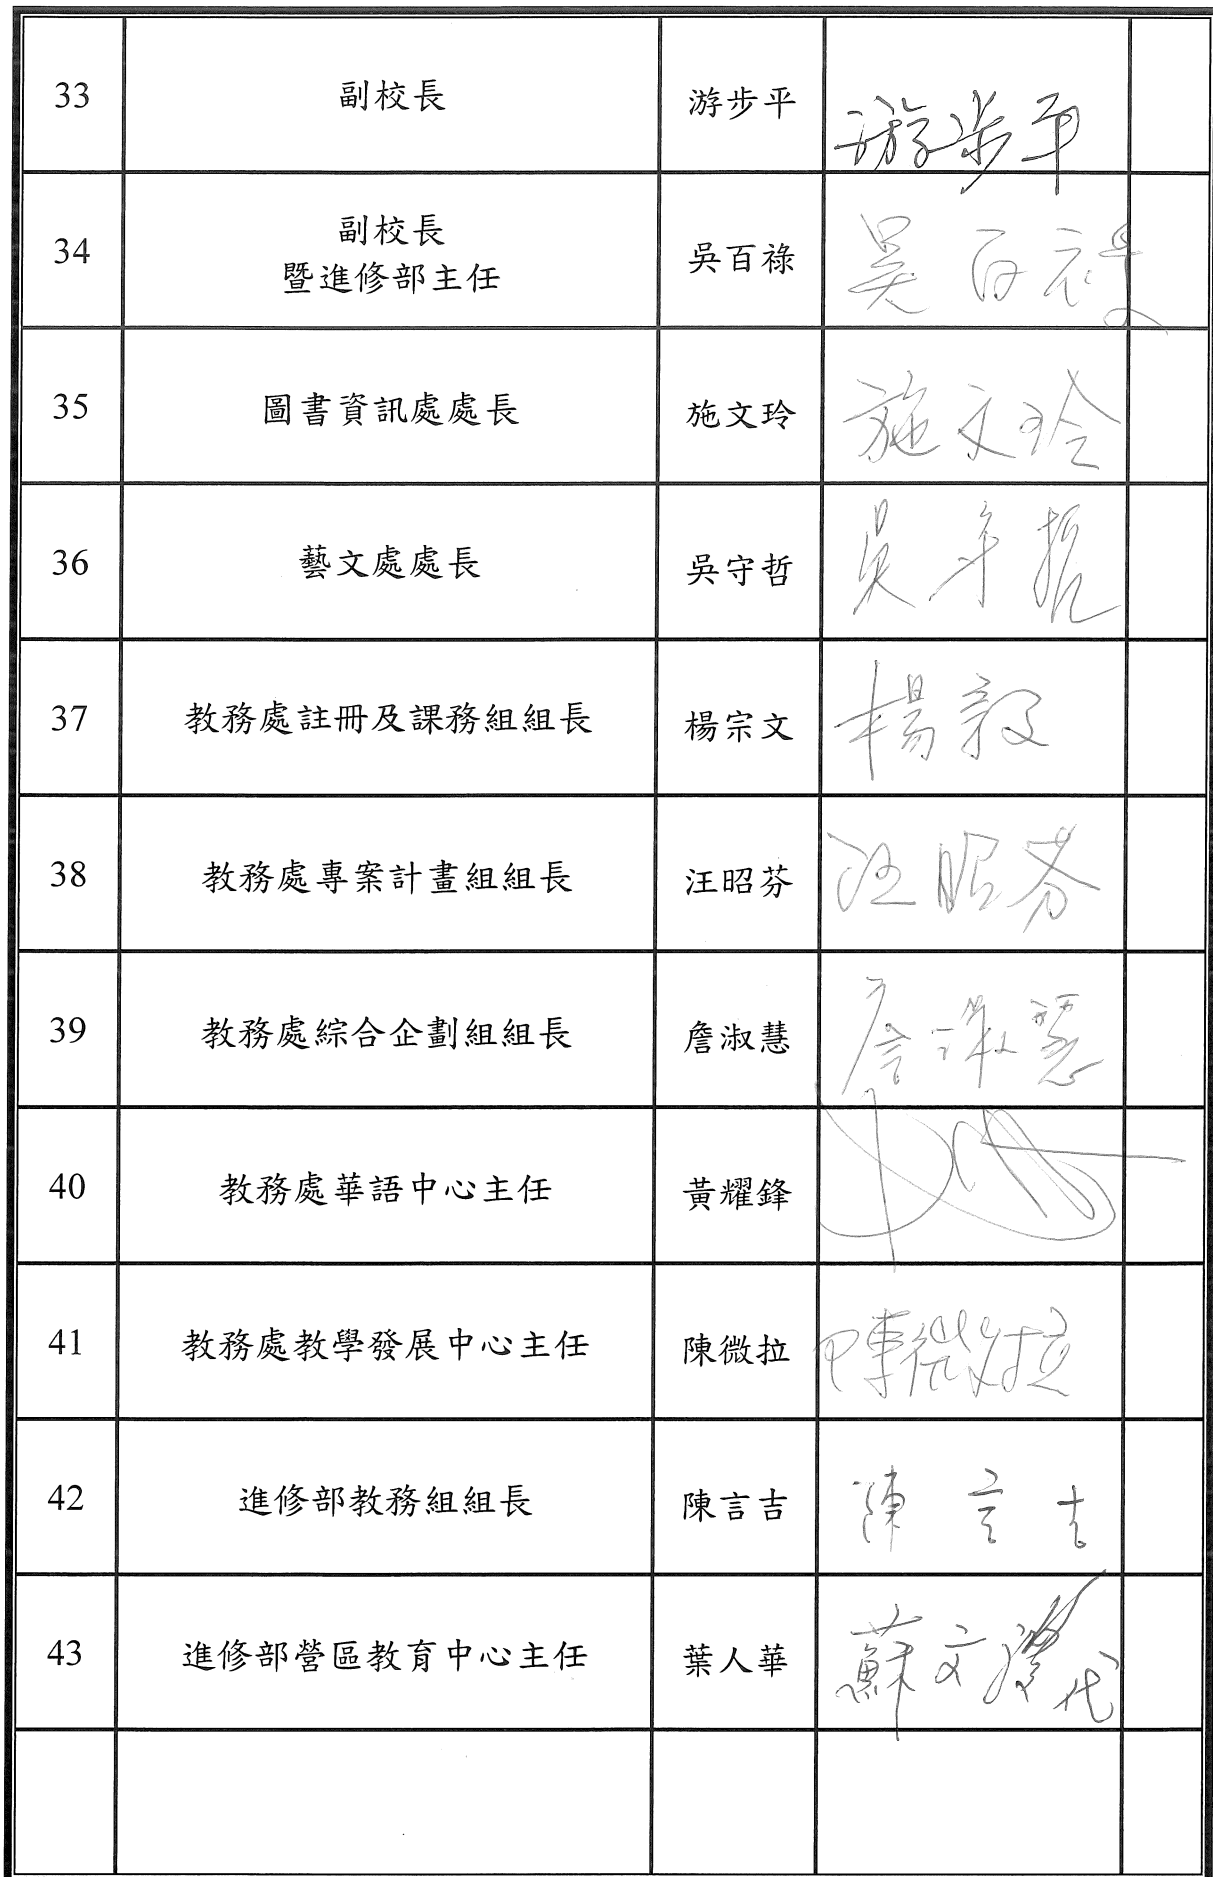 33 副校長 游步平 游步平
34 副校長
暨進修部主任 吳百祿 吳百祿
35 圖書資訊處處長 施文玲 施文玲
36 藝文處處長 吳守哲 吳守哲
37 教務處註冊及課務組組長 楊宗文 楊
38 教務處專案計畫組組長 汪昭芬 汪昭芬
39 教務處綜合企劃組組長 詹淑慧 詹淑慧
40 教務處華語中心主任 黃耀鋒
41 教務處教學發展中心主任 陳微拉 陳微拉
42 進修部教務組組長 陳言吉 陳言吉
43 進修部營區教育中心主任 葉人華 蘇文 代